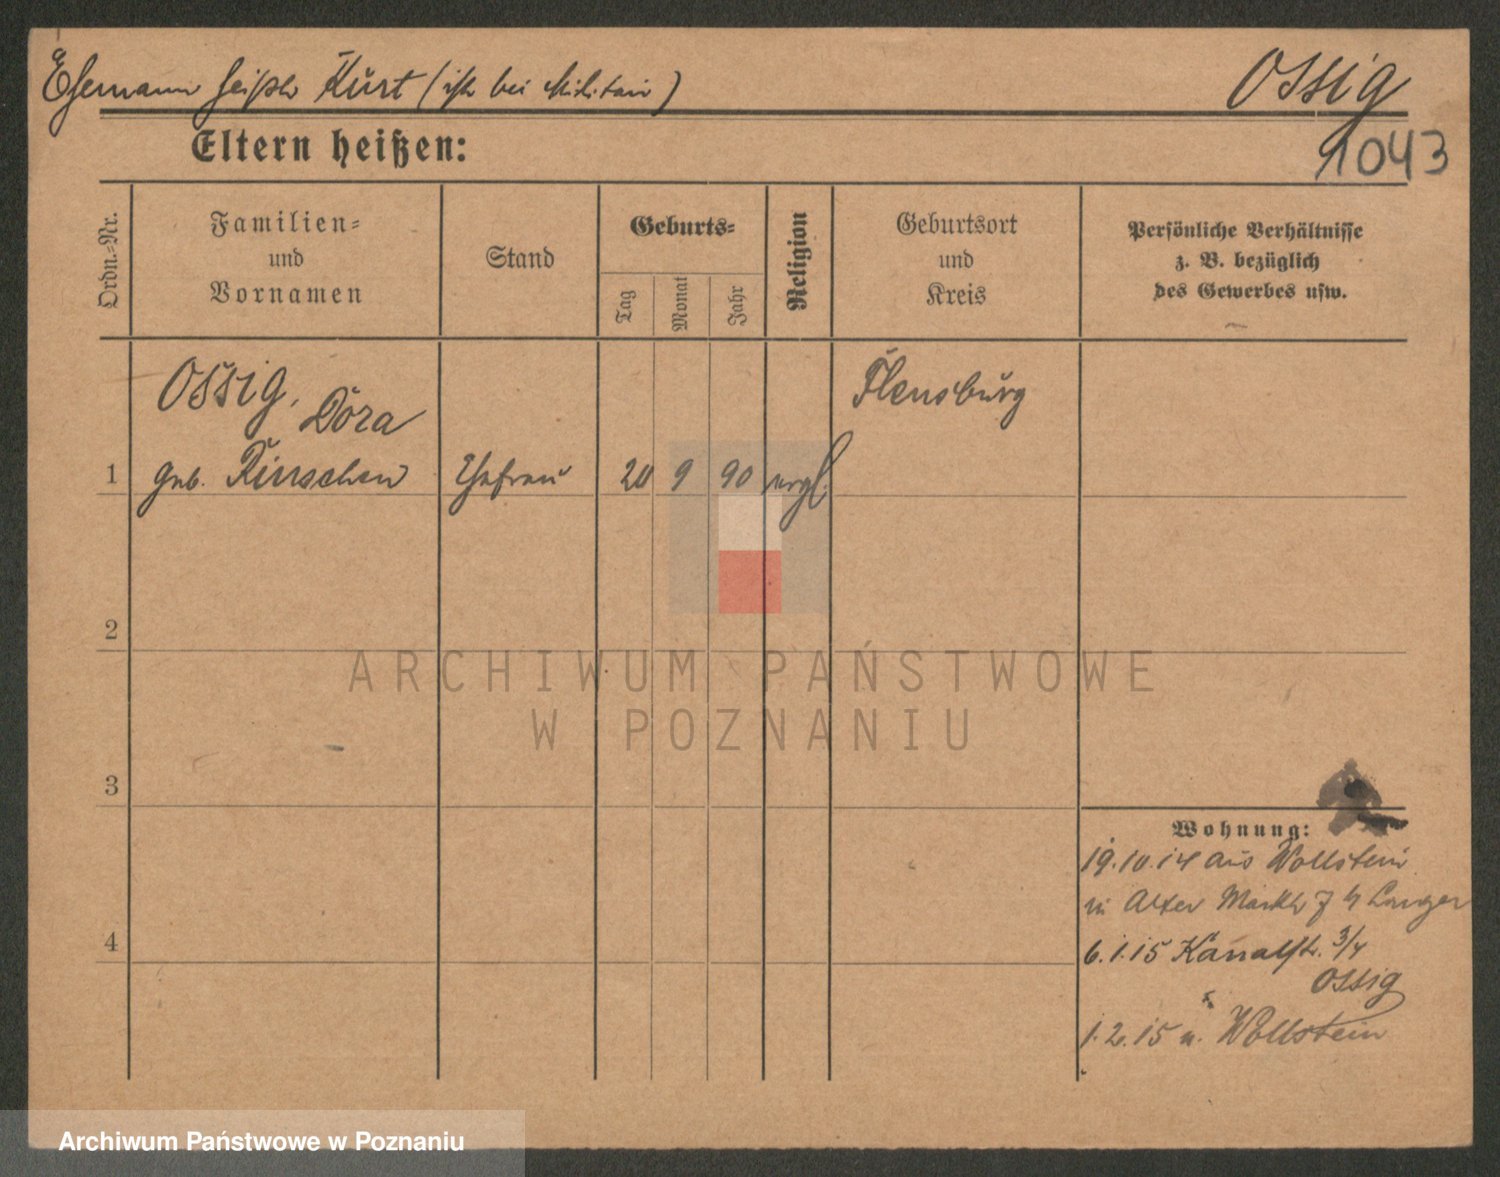 Ehemann heißt Kurt (ist bei Militair)
Ossig
1043
Eltern heißen:
Ordn.-Nr.
Familien-
und
Vornamen
Stand
Geburts-
Tag
Monat
Jahr
Religion
Geburtsort
und
Kreis
Persönliche Verhältnisse
z. B. bezüglich
des Gewerbes usw.
Ossig, Dora
1 geb. Ehefrau 20 9 90 evgl. Flensburg
2
3
4
ARCHIWUM PAŃSTWOWE
W POZNANIU
Wohnung:
19.10.14 aus Wollstein
in Alter Markt 7 Langer
6.1.15 Kanalstr. 3/4
Ossig
1.2.15 n. Wollstein
Archiwum Państwowe w Poznaniu